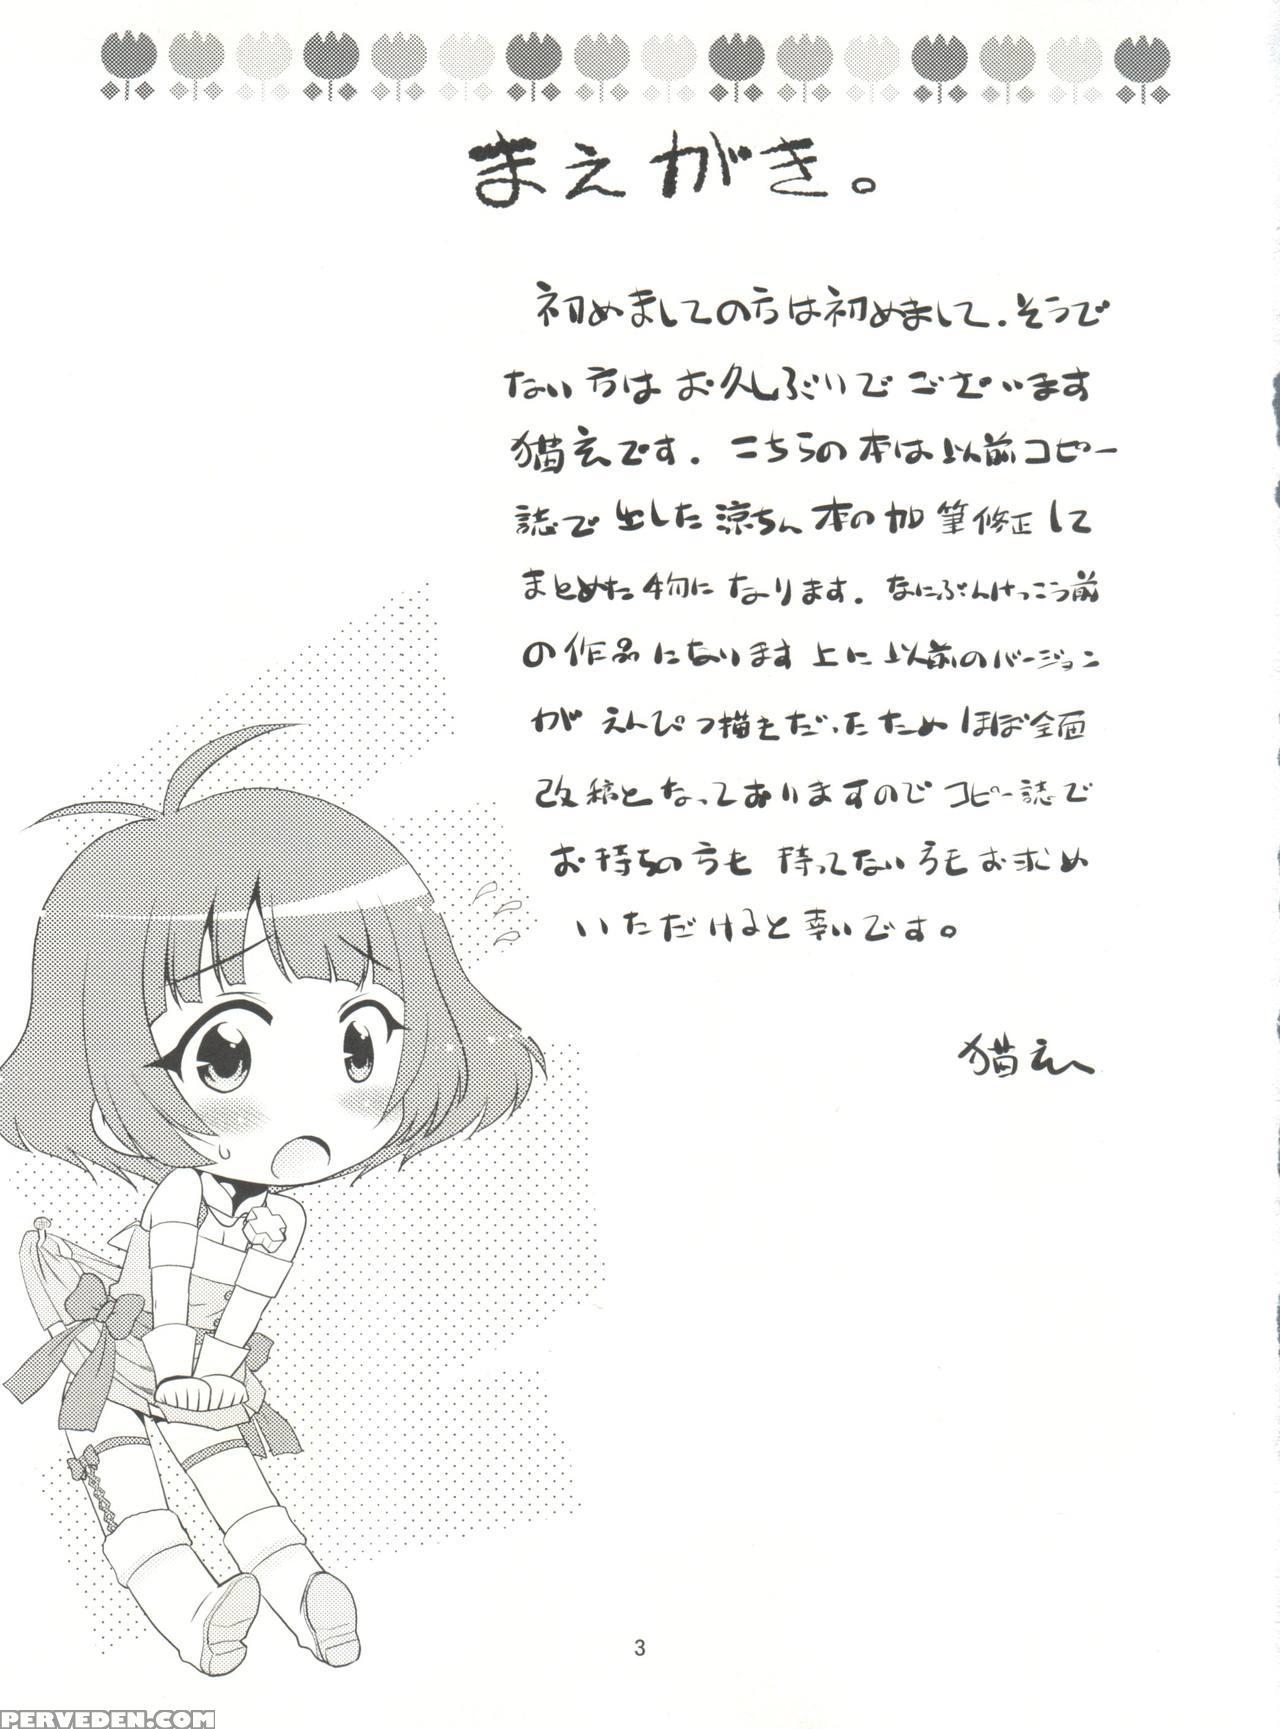 まえがき。
初めましての方は初めまして、そうで
ない方はお久しぶりでございます
猫玄です。こちらの本は以前コピー
誌で出した涼ちん本の加筆修正して
まとめた物になります。なにぶんけっこう前
の作品になります上に以前のバージョン
がえんぴつ描きだったためほぼ全面
改稿となっておりますのでコピー誌で
お持ちの方も持ってない方もお求め
いただけると幸いです。
猫玄
3
PERVEDEN.COM